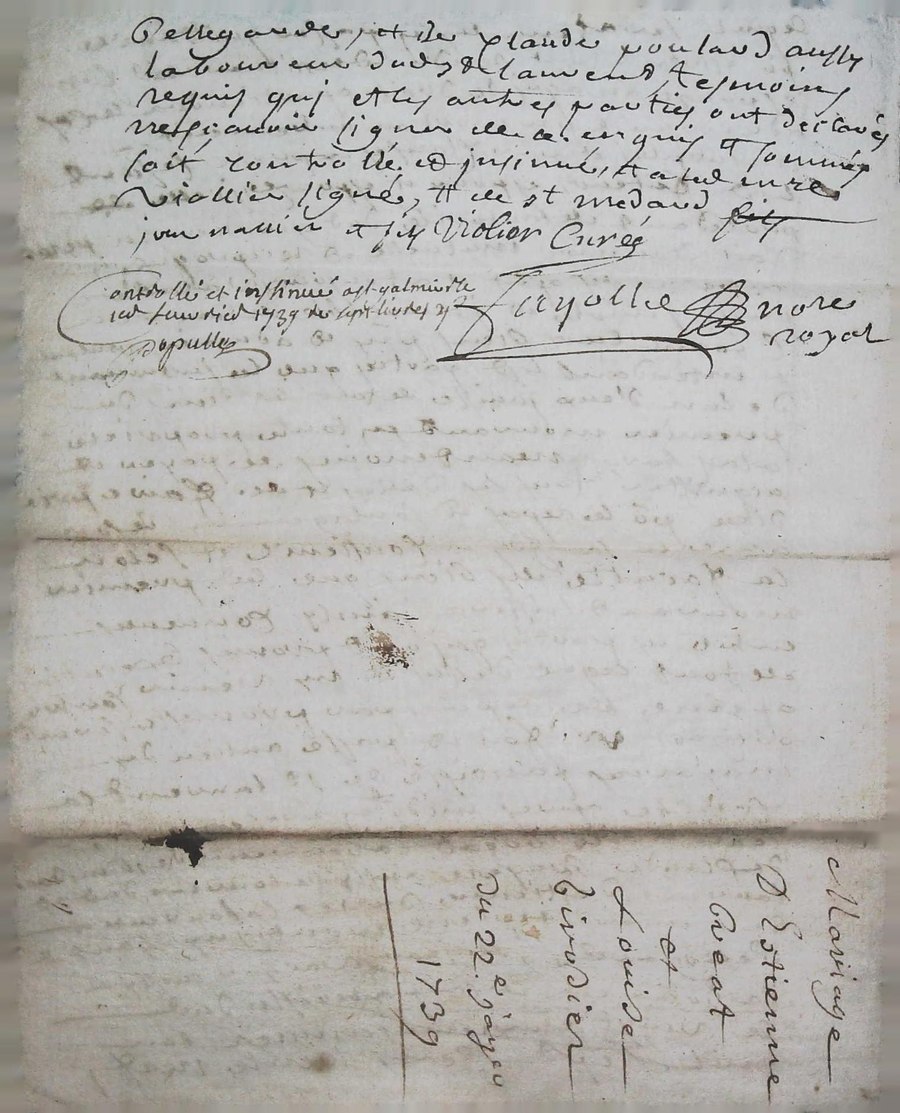 Bellegarde, et de Claude poulard aussy
laboureur dud st laurend tesmoins
requis qui et les autres parties ont declarés
nesçavoir signer de ce enquis et sommés
soit controllé et insinué, et a led mre
Viollier signé, et de st medard
jour namier et sig Violier Curé
Controllé et insinué a st galmier le
1739 sept livres
Depulle
fayolle nore
royal
Mariage
D'Estienne
Creat
et
Louise
Tivodier
Du 22.e janv
1739